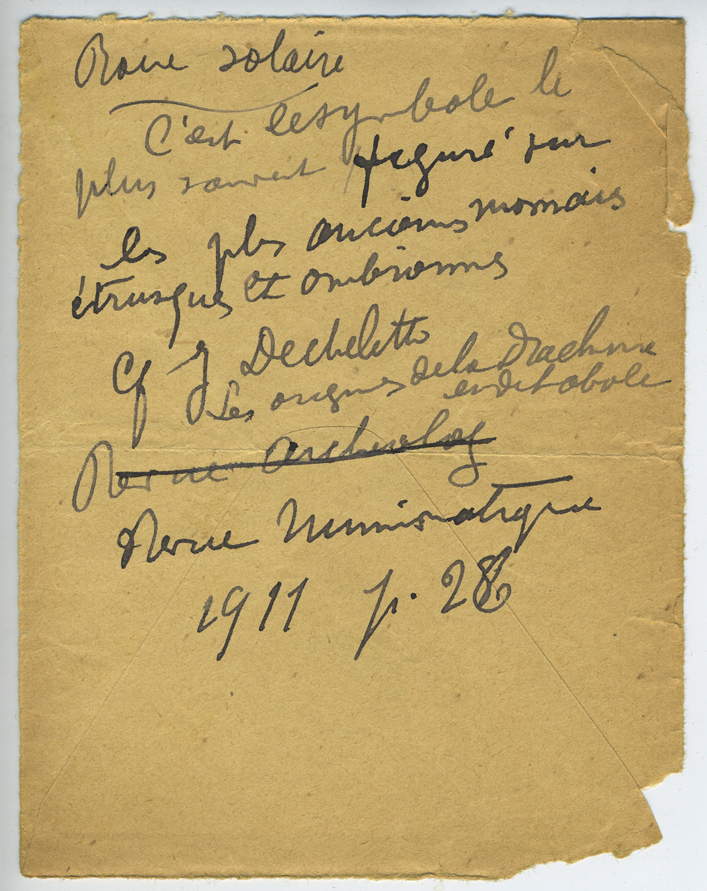 Roue solaire
C'est le symbole le
plus souvent figuré sur
les plus anciens monnais
étrusques et ombriennes
Cf J Dechelette
Les origines de la Drachme
et de l'obole
Revue Archeolog
Revue Numismatique
1911 p. 28